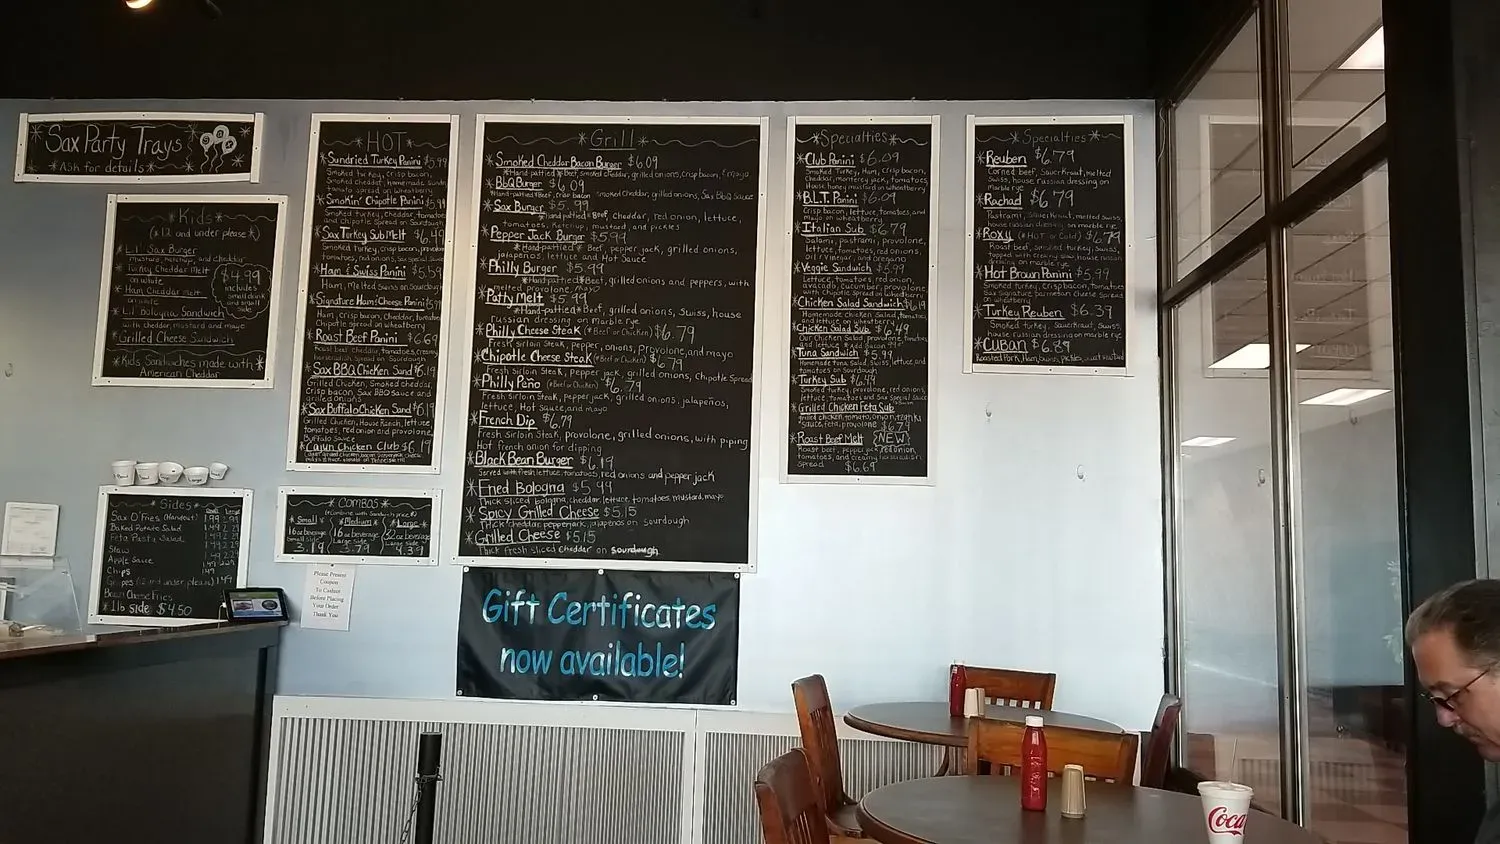 Sax Party Trays
*Ask for details*
*Kids*
(*12 and under please*)
* Lil' Sax Burger
mustard, ketchup, and cheddar
* Turkey Cheddar Melt
on white
* Ham Cheddar Melt
on white
* Lil Bologna Sandwich
with cheddar, mustard and mayo
* Grilled Cheese Sandwich
$4.99
includes
small drink
and small
side
*Kids Sandwiches made with*
American Cheddar
*Sides*
Small Large
Sax O' Fries (Handcut) 1.99
Baked Potato Salad 1.49 2.29
Feta Pasta Salad 1.49 2.29
Slaw 1.49 2.29
Apple Sauce 1.49 2.29
Chips 1.49
Grapes (12 and under, please) 1.49
Bacon Cheese Fries
*1lb side $4.50
*HOT*
*Sundried Turkey Panini $5.99
Smoked Turkey, Crisp bacon,
Smoked cheddar, homemade sundried
tomato spread on wheatberry
*Smokin' Chipotle Panini $5.99
Smoked turkey, Cheddar, tomatoes
and Chipotle Spread on Sourdough
*Sax Turkey Sub Melt $6.49
Smoked Turkey, crisp bacon, provolone,
tomatoes, red onions, Sax special sauce
*Ham & Swiss Panini $5.59
Ham, Melted Swiss on Sourdough
*Signature Ham & Cheese Panini
Ham, crisp bacon, cheddar, tomatoes,
Chipotle spread on wheatberry
*Roast Beef Panini $6.69
Roast beef, cheddar, tomatoes, creamy
horseradish Spread on Sourdough
*Sax BBQ Chicken Sand $6.19
Grilled Chicken, Smoked cheddar,
Crisp bacon, Sax BBQ Sauce and
grilled onions
*Sax Buffalo Chicken Sand $6.19
Grilled Chicken, House Ranch, lettuce,
tomatoes, red onion and provolone,
Buffalo Sauce
*Cajun Chicken Club $6.19
*COMBOS*
(*Combine with Sandwich price*)
*Small* *Medium* *Large*
16oz beverage 16oz beverage 32oz beverage
Small side Large side Large side
3.19 3.79 4.39
Please Present
Coupon
To Cashier
Before Placing
Your Order
Thank You
*Grill*
*Smoked Cheddar Bacon Burger $6.09
*Hand-pattied *Beef, smoked cheddar, grilled onions, crisp bacon, & mayo
*BBQ Burger $6.09
*Hand-pattied *Beef, crisp bacon, smoked cheddar, grilled onions, Sax BBQ Sauce
*Sax Burger $5.99
*Hand pattied *Beef, Cheddar, red onion, lettuce,
tomatoes, Ketchup, mustard, and pickles
*Pepper Jack Burger $5.99
*Hand-pattied *Beef, pepper jack, grilled onions,
jalapeños, lettuce and Hot Sauce
*Philly Burger $5.99
*Hand-pattied *Beef, grilled onions and peppers, with
melted provolone, mayo
*Patty Melt $5.99
*Hand-pattied *Beef, grilled onions, Swiss, house
russian dressing on marble rye
*Philly Cheese Steak (*Beef or Chicken) $6.79
Fresh sirloin Steak, pepper, onions, provolone, and mayo
*Chipotle Cheese Steak (*Beef or Chicken) $6.79
Fresh sirloin Steak, pepper jack, grilled onions, Chipotle Spread
*Philly Peño (*Beef or Chicken) $6.79
Fresh sirloin Steak, pepper jack, grilled onions, jalapeños,
lettuce, Hot Sauce, and mayo
*French Dip $6.79
Fresh sirloin Steak, provolone, grilled onions, with piping
Hot french onion for dipping
*Black Bean Burger $6.19
Served with fresh lettuce, tomatoes, red onions and pepper jack
*Fried Bologna $5.49
Thick sliced bologna, cheddar, lettuce, tomatoes, mustard, mayo
*Spicy Grilled Cheese $5.15
Thick cheddar, pepperjack, jalapeños on sourdough
*Grilled Cheese $5.15
Thick fresh sliced cheddar on sourdough
Gift Certificates
now available!
*Specialties*
*Club Panini $6.09
Smoked Turkey, Ham, Crisp Bacon,
Cheddar, monterey jack, tomatoes,
House honey mustard on wheatberry
*B.L.T. Panini $6.09
Crisp bacon, lettuce, tomatoes, and
mayo on wheatberry
*Italian Sub $6.79
Salami, pastrami, provolone,
lettuce, tomatoes, red onions,
oil & vinegar, and oregano
*Veggie Sandwich $5.99
lettuce, tomatoes, red onion,
avocado, cucumber, provolone
with Chipotle Spread on wheatberry
*Chicken Salad Sandwich $6.19
Homemade chicken Salad, tomato,
lettuce on wheatberry
*Chicken Salad Sub $6.49
Our Chicken Salad, provolone, tomatoes
*Tuna Sandwich $5.99
Homemade tuna Salad, Swiss, lettuce, and
tomatoes on Sourdough
*Turkey Sub $6.19
Smoked turkey, provolone, red onions,
lettuce, tomatoes and Sax Special Sauce
*Grilled Chicken Feta Sub
grilled chicken, tomato, onion, tzatziki
sauce, feta $6.79
*Roast Beef Melt {NEW}
Roast beef, pepper jack, red onion,
tomatoes, and creamy horseradish
spread $6.69
*Specialties*
*Reuben $6.79
Corned beef, sauerkraut, melted
swiss, house russian dressing on
marble rye
*Rachad $6.79
Pastrami, Sauerkraut, melted swiss,
house russian dressing on marble rye
*Roxy (*HOT or Cold) $6.79
Roast beef, smoked turkey, Swiss,
topped with creamy slaw, house russian
dressing on marble rye
*Hot Brown Panini $5.99
Smoked turkey, crisp bacon, tomatoes
Sax signature parmesan cheese Spread
on wheatberry
*Turkey Reuben $6.39
Smoked turkey, Sauerkraut, Swiss,
house russian dressing on marble rye
*CUBAN $6.89
Roasted Pork, Ham,
Coca